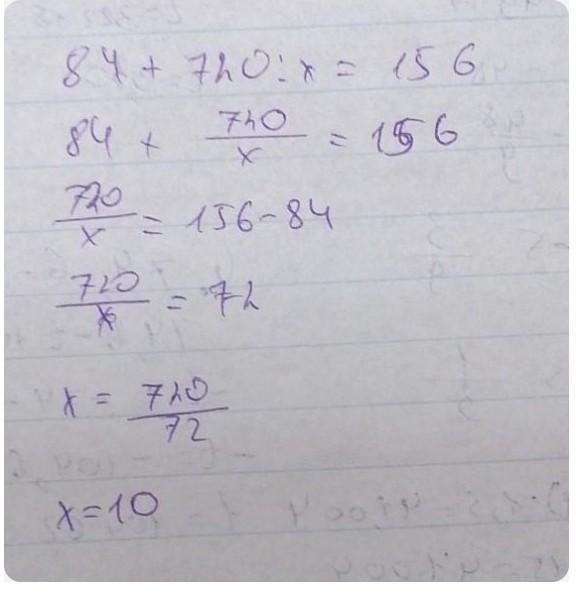 84 + 720 : x = 156
84 + 720/x = 156
720/x = 156 - 84
720/x = 72
x = 720/72
x = 10